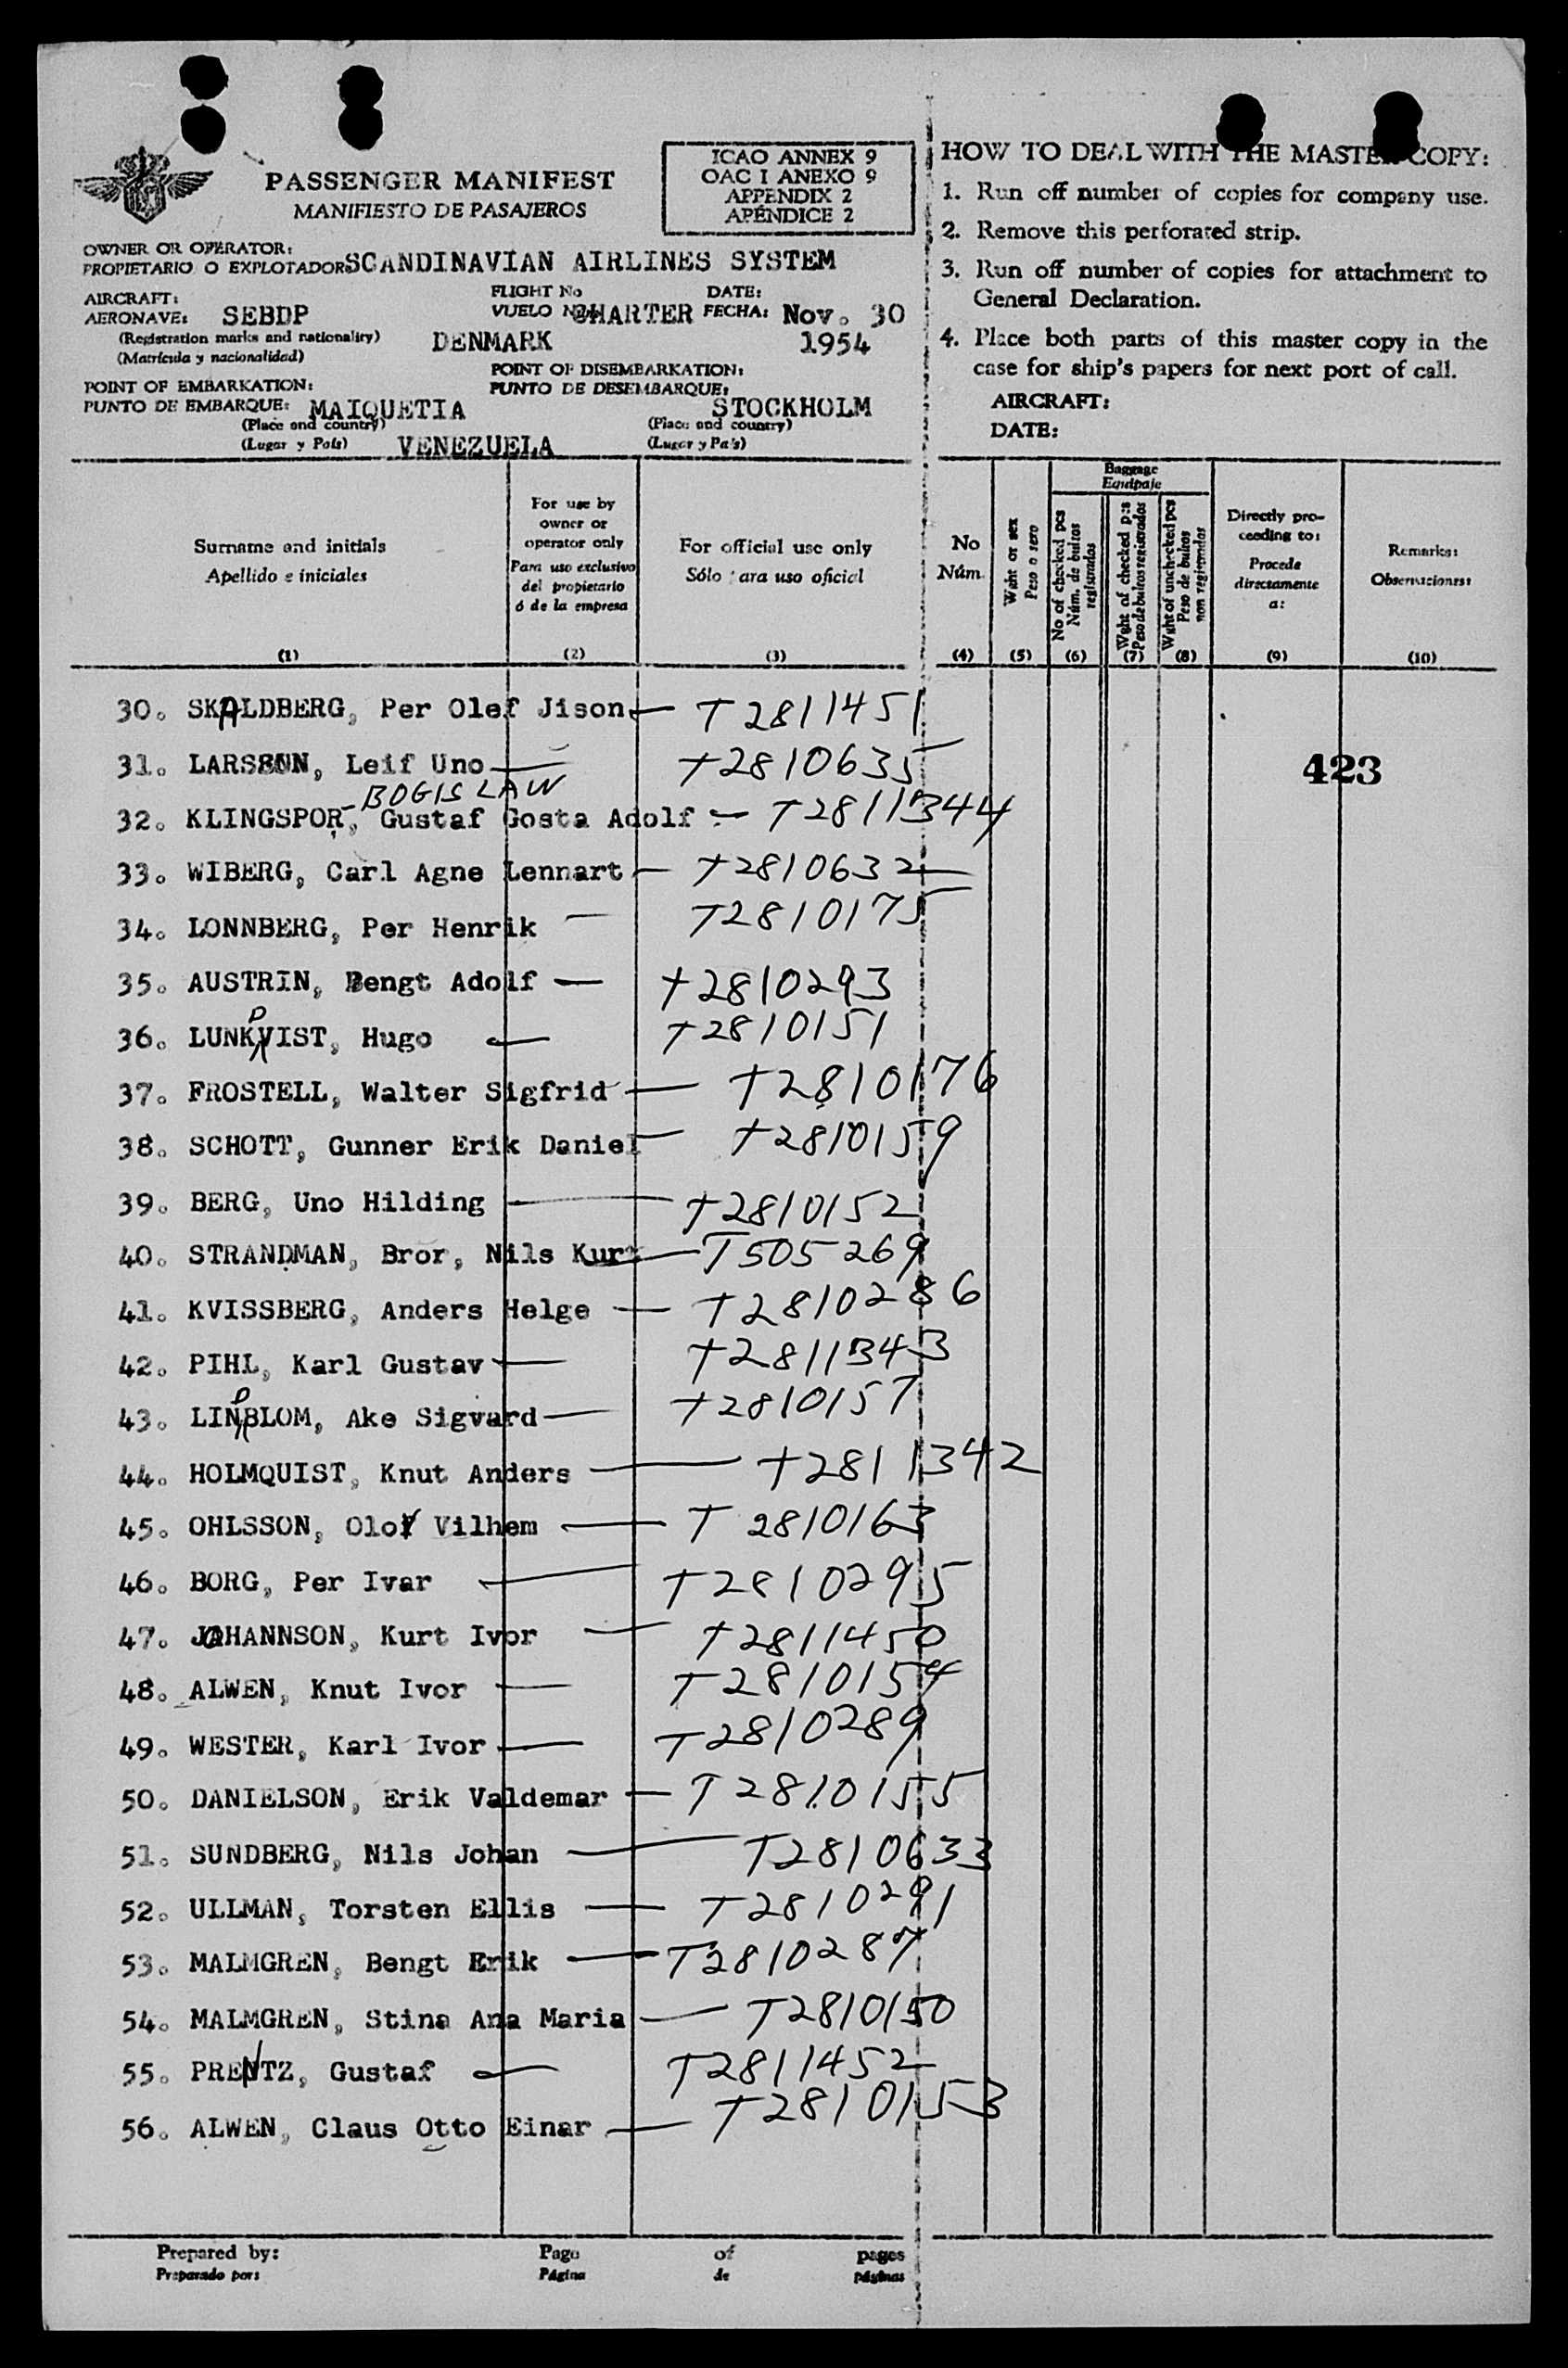 PASSENGER MANIFEST
MANIFIESTO DE PASAJEROS
ICAO ANNEX 9
OAC I ANEXO 9
APPENDIX 2
APÉNDICE 2
OWNER OR OPERATOR:
PROPIETARIO O EXPLOTADOR: SCANDINAVIAN AIRLINES SYSTEM
AIRCRAFT:
AERONAVE: SEBDP
(Registration marks and nationality)
(Matrícula y nacionalidad)
DENMARK
FLIGHT No
VUELO Núm. CHARTER
DATE:
FECHA: Nov. 30
1954
POINT OF EMBARKATION:
PUNTO DE EMBARQUE: MAIQUETIA
(Place and country)
(Lugar y País) VENEZUELA
POINT OF DISEMBARKATION:
PUNTO DE DESEMBARQUE:
STOCKHOLM
(Place and country)
(Lugar y País)
HOW TO DEAL WITH THE MASTER COPY:
1. Run off number of copies for company use.
2. Remove this perforated strip.
3. Run off number of copies for attachment to
General Declaration.
4. Place both parts of this master copy in the
case for ship's papers for next port of call.
AIRCRAFT:
DATE:
Surname and initials
Apellido e iniciales
(1)
For use by
owner or
operator only
Para uso exclusivo
del propietario
ó de la empresa
(2)
For official use only
Sólo para uso oficial
(3)
No
Núm.
(4)
Wght or sex
Peso o sexo
(5)
Baggage
Equipaje
No of checked pcs
Núm. de bultos
registrados
(6)
Wght of checked pcs
Peso de bultos registrados
(7)
Wght of unchecked pcs
Peso de bultos
non registrados
(8)
Directly pro-
ceeding to:
Procede
directamente
a:
(9)
Remarks:
Observaciones:
(10)
30. SKALDBERG, Per Olef Jison — T2811451
31. LARSSON, Leif Uno — T2810635
423
BOGISLAW
32. KLINGSPOR, Gustaf Gosta Adolf — T2811344
33. WIBERG, Carl Agne Lennart — T2810632
34. LONNBERG, Per Henrik — T2810175
35. AUSTRIN, Bengt Adolf — T2810293
36. LUNDKVIST, Hugo — T2810151
37. FROSTELL, Walter Sigfrid — T2810176
38. SCHOTT, Gunner Erik Daniel — T2810159
39. BERG, Uno Hilding — T2810152
40. STRANDMAN, Bror, Nils Kurt — T505269
41. KVISSBERG, Anders Helge — T2810286
42. PIHL, Karl Gustav — T2811343
43. LINDBLOM, Ake Sigvard — T2810157
44. HOLMQUIST, Knut Anders — T2811342
45. OHLSSON, Olof Vilhem — T2810163
46. BORG, Per Ivar — T2810295
47. JOHANNSON, Kurt Ivor — T2811450
48. ALWEN, Knut Ivor — T2810154
49. WESTER, Karl Ivor — T2810289
50. DANIELSON, Erik Valdemar — T2810155
51. SUNDBERG, Nils Johan — T2810633
52. ULLMAN, Torsten Ellis — T2810291
53. MALMGREN, Bengt Erik — T2810287
54. MALMGREN, Stina Ana Maria — T2810150
55. PRENTZ, Gustaf — T2811452
56. ALWEN, Claus Otto Einar — T2810153
Prepared by:
Preparado por:
Page of pages
Página de páginas